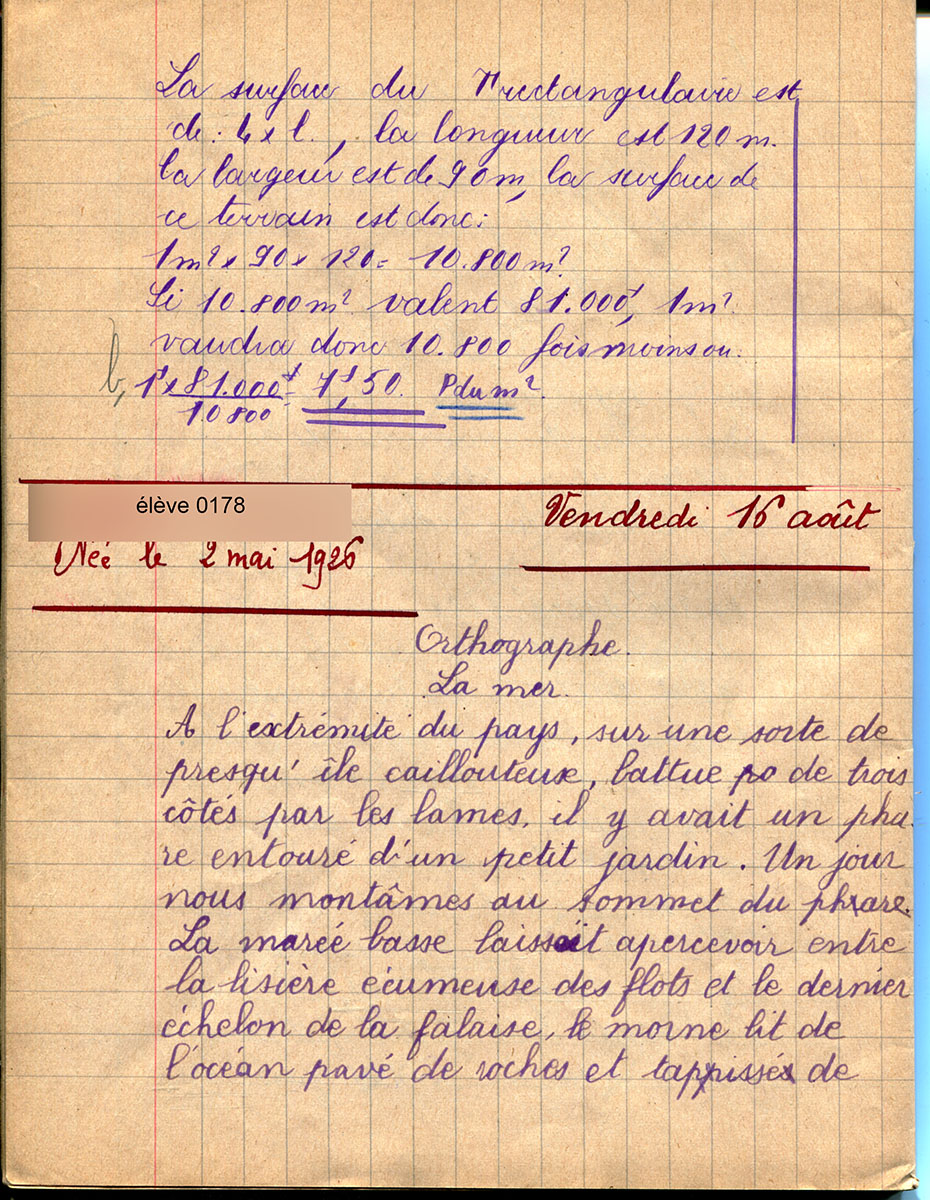 La surface du Trectangulaire est
de: L x l., la longueur est 120 m.
la largeur est de 90 m, la surface de
ce terrain est donc:
1m² x 90 x 120 = 10.800 m².
Si 10.800 m² valent 81.000f, 1m²
vaudra donc 10.800 fois moins ou.
b, 1f x 81.000f = 7f,50. P du m².
10800
élève 0178
Vendredi 16 août
Née le 2 mai 1926
Orthographe.
La mer.
A l'extrémité du pays, sur une sorte de
presqu'île caillouteuse, battue po de trois
côtés par les lames, il y avait un pha-
re entouré d'un petit jardin. Un jour
nous montâmes au sommet du phrare.
La maréé basse laissait apercevoir entre
la lisière écumeuse des flots et le dernier
échelon de la falaise, le morne lit de
l'océan pavé de roches et tappissés de